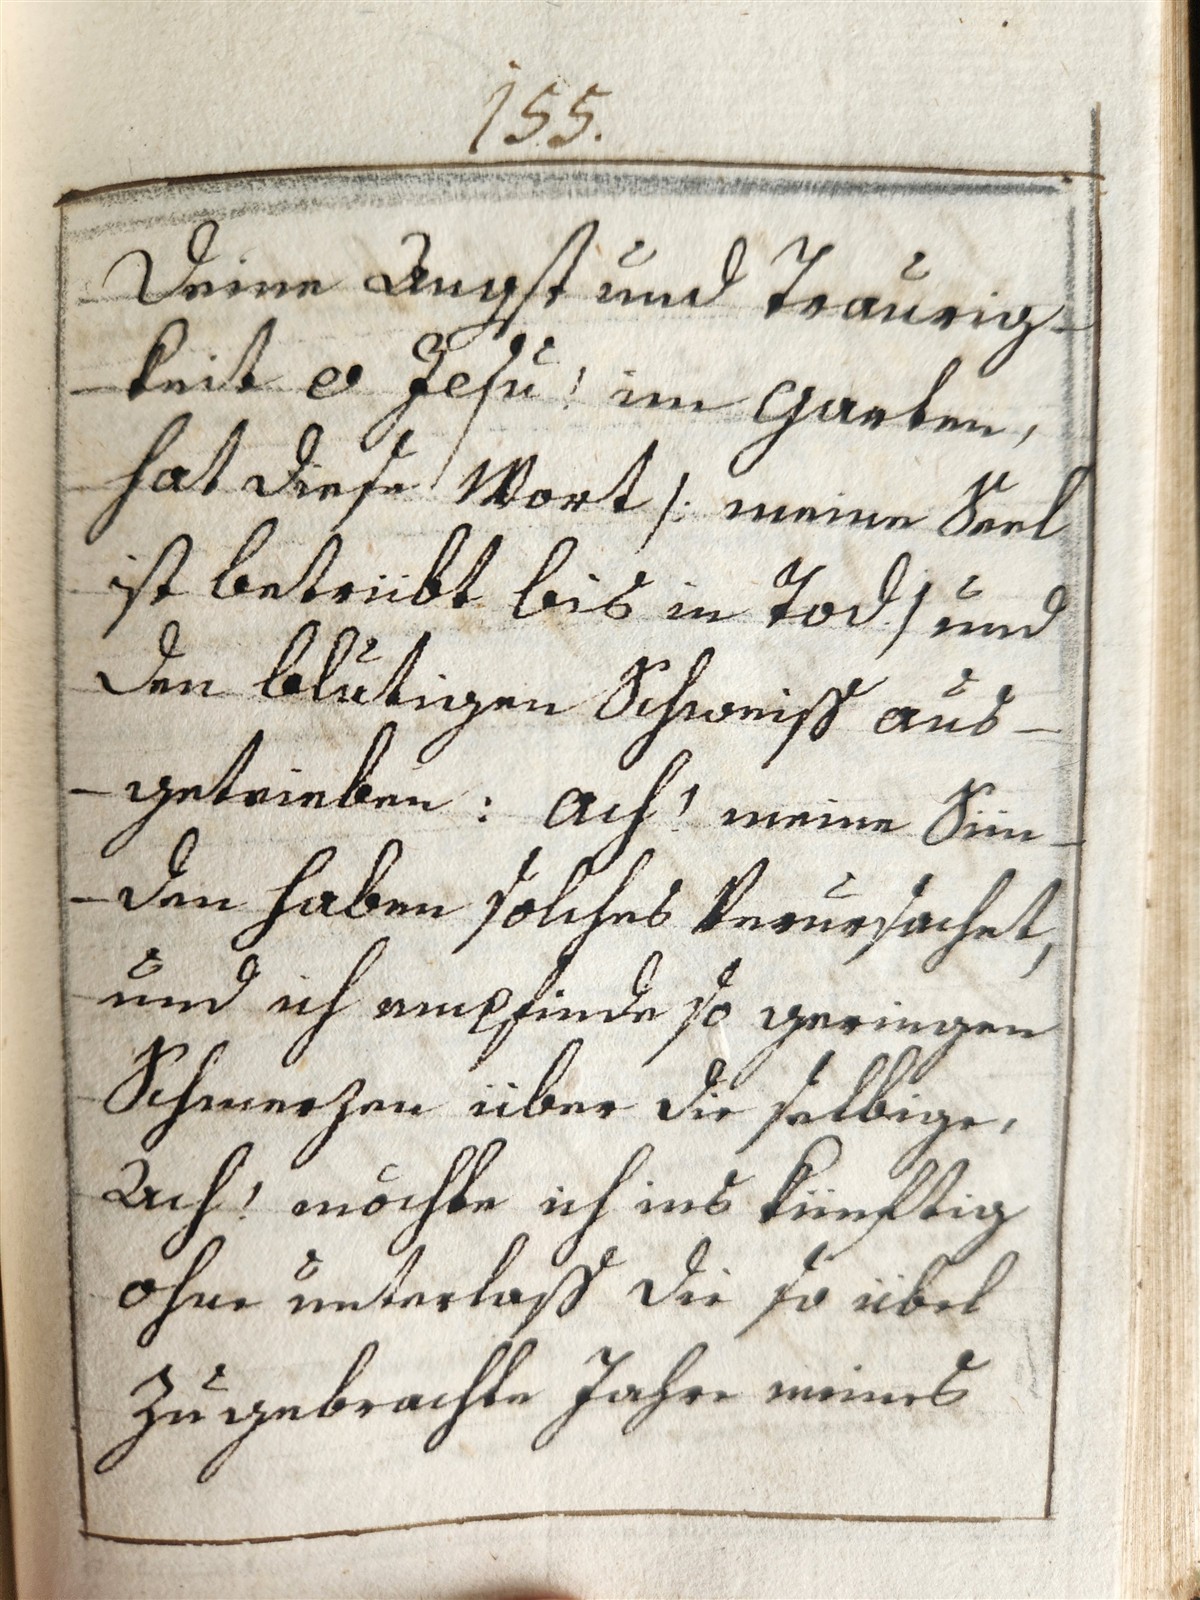 155.
Deine Angst und Traurig-
-keit o Jesu! im Garten,
hat diese Wort /: meine Seel
ist betrübt bis in Tod :/ und
den blutigen Schweiß aus-
-getrieben: ach! meine Sün-
-den haben solches Verursachet,
und ich empfinde so geringen
Schmerzen über die selbige,
Ach! möchte ich ins künftig
ohne unterlaß die so übel
Zugebrachte Jahre meines